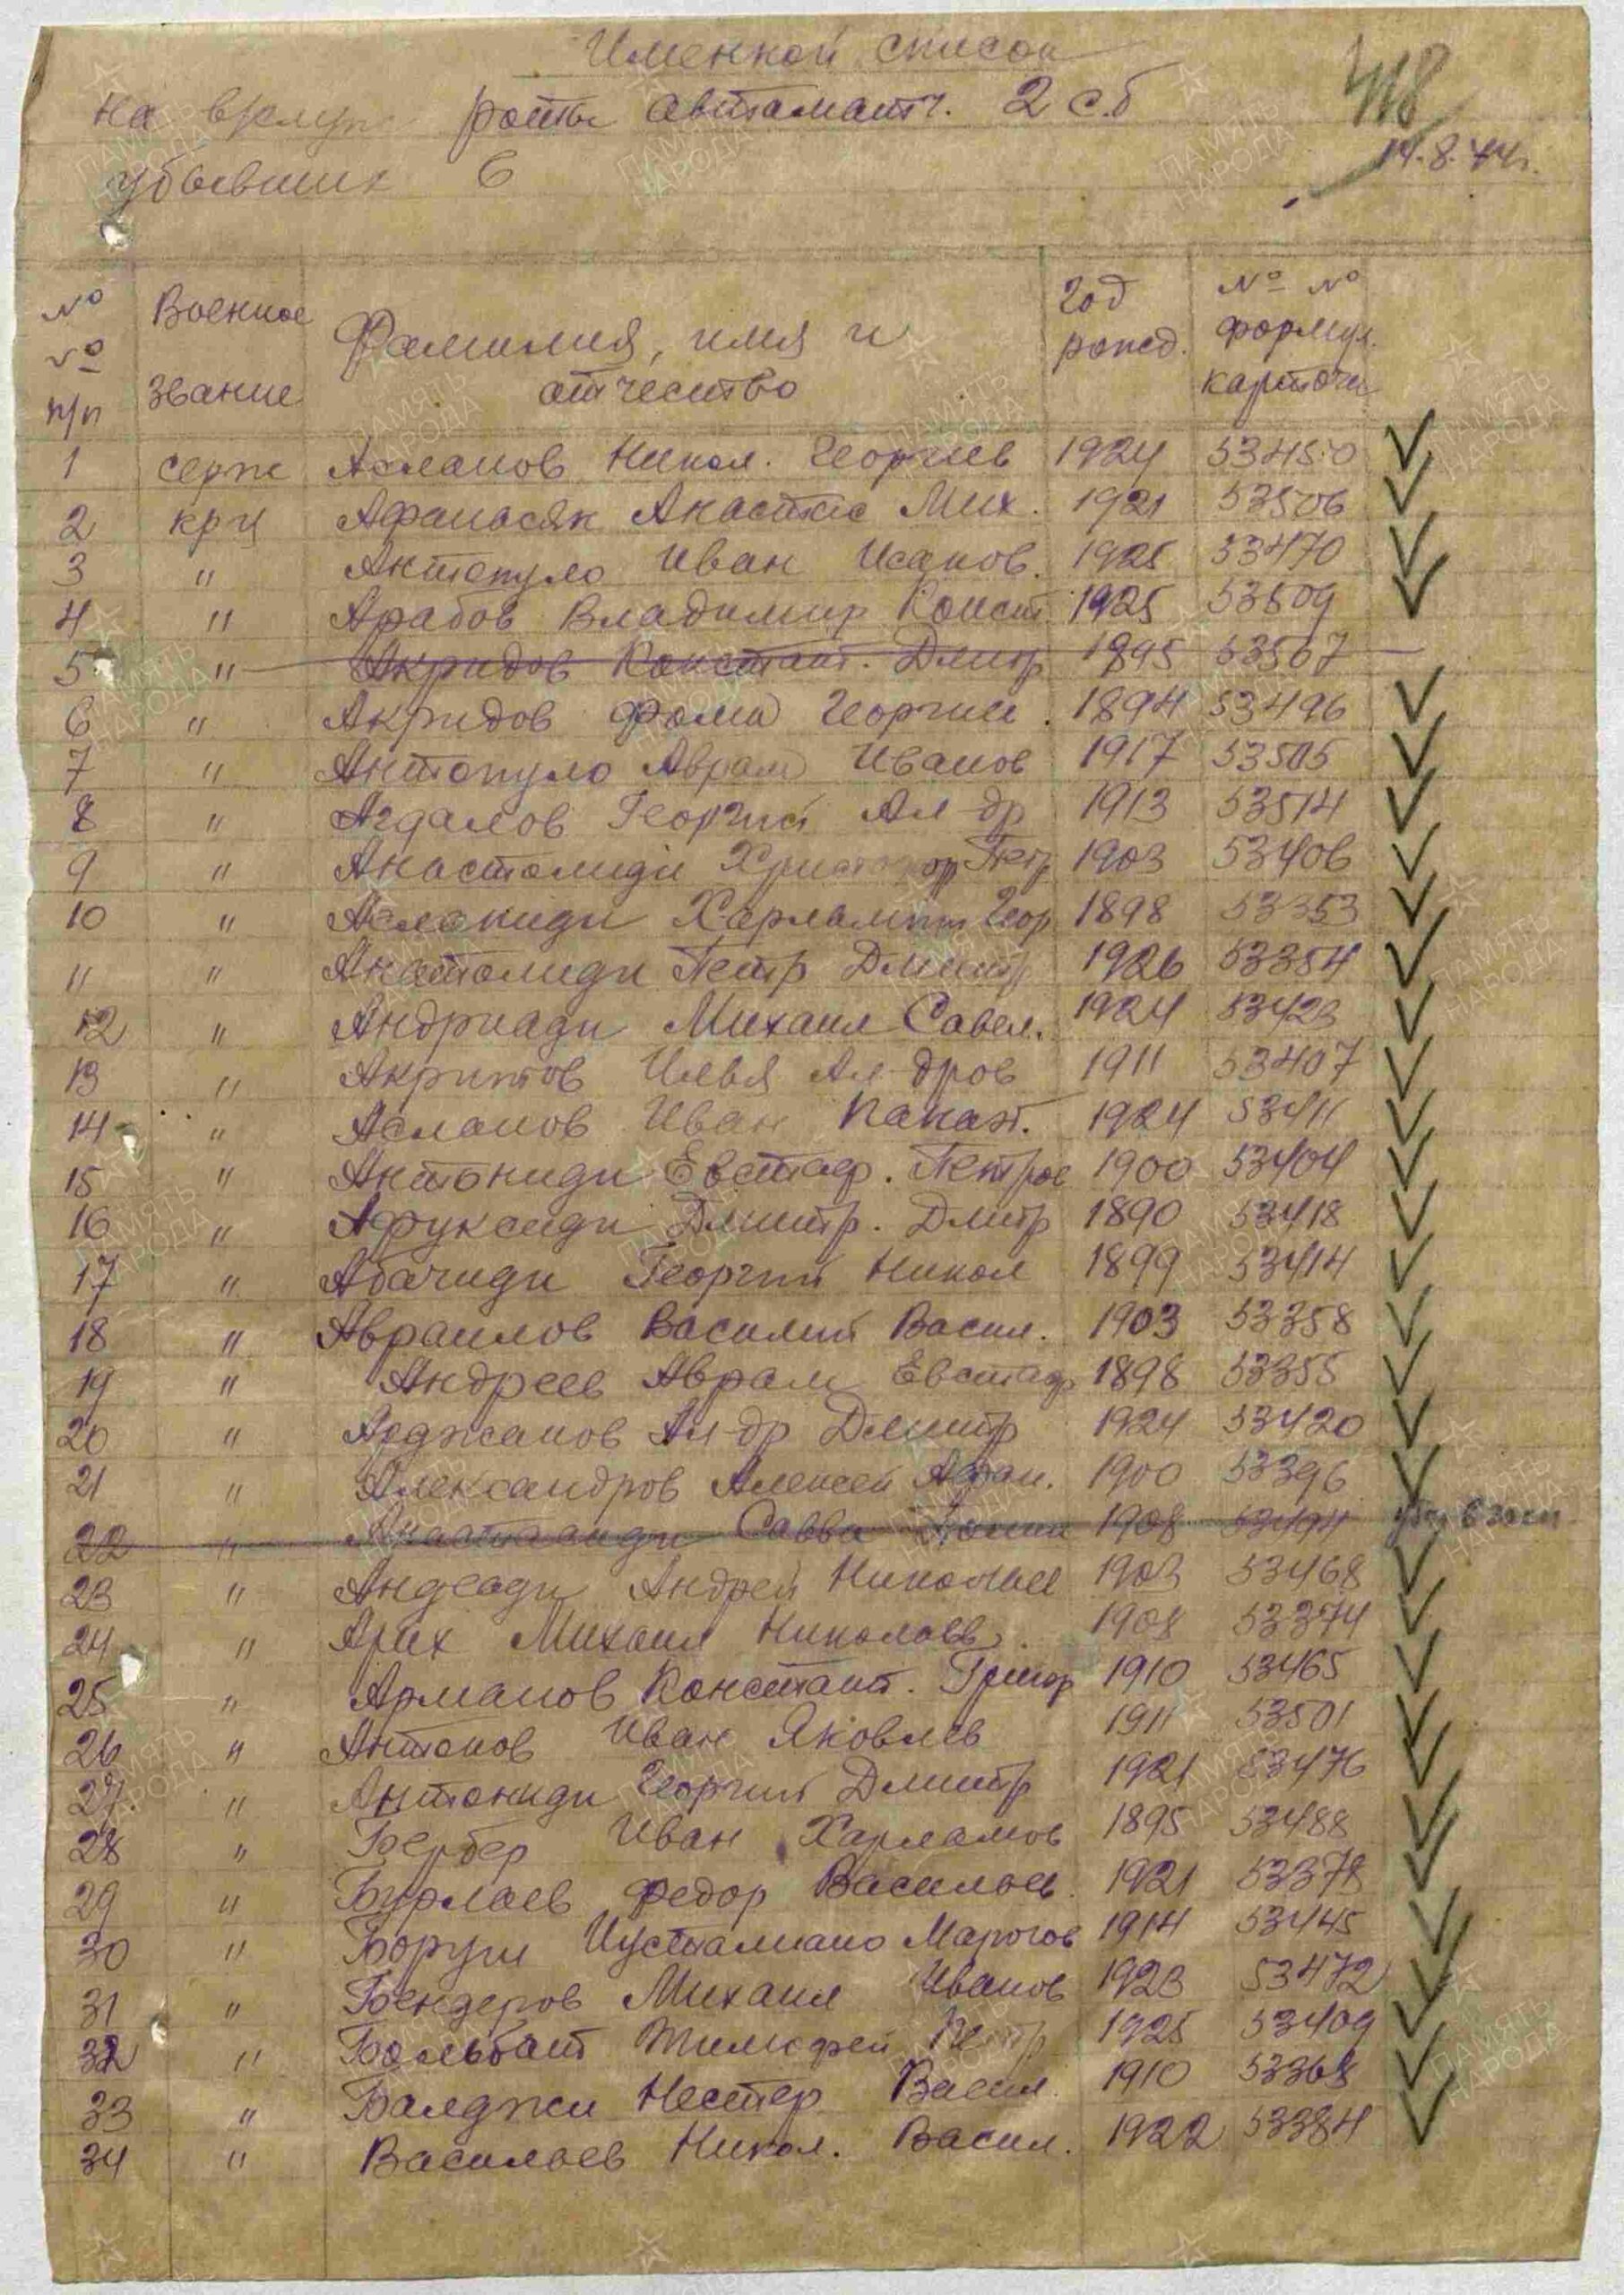 Именной список
на роты автомат. 2 с.б
убывших 6
418
14.8.44г.
№ № п/п Военное звание Фамилия, имя и отчество Год рожд. № № формул. карточки
1 серж Асланов Никол. Георгиев 1924 53450
2 крц Афанасяк Анастас Мих. 1921 53506
3 " Антопуло Иван Исаков. 1925 53470
4 " Арабов Владимир Конст. 1925 53509
5 " Акридов Констант. Дмитр 1895 53507
6 " Акридов Фома Георгии. 1894 53496
7 " Антопуло Аврам Иванов 1917 53505
8 " Агдалов Георгий Ал-др 1913 53514
9 " Анастолиди Христофор Петр 1903 53406
10 " Асланиди Харлампи Геор 1898 53353
11 " Анастолиди Петр Дмитр 1926 53354
12 " Андриади Михаил Савел. 1924 53423
13 " Акритов Илья Ал-дров 1911 53407
14 " Асланов Иван Панаж. 1924 53411
15 " Антониди Евстаф. Петров 1900 53404
16 " Афуксиди Дмитр. Дмитр 1890 53418
17 " Абачиди Георгий Никол 1899 53414
18 " Авраилов Василий Васил. 1903 53358
19 " Андреев Аврам Евстаф 1898 53355
20 " Арджанов Ал-др Дмитр 1924 53420
21 " Александров Алексей Афан. 1900 53396
22 " Савва 1908 53494
23 " Андеади Андрей Николаев 1903 53468
24 " Арих Михаил Николаев. 1908 53374
25 " Арманов Констант. Григор 1910 53465
26 " Антонов Иван Яковлев 1911 53501
27. " Антониди Георгий Дмитр 1921 53476
28 " Бербер Иван Харламов 1895 53488
29 " Бурлаев Федор Васильев. 1921 53378
30 " Боруги Иусталиано Марогов 1914 53445
31 " Бендеров Михаил Иванов 1923 53472
32 " Бальбаш Тимофей Петр 1925 53409
33 " Балджи Нестер Васил. 1910 53368
34 " Васильев Никол. Васил. 1922 53384